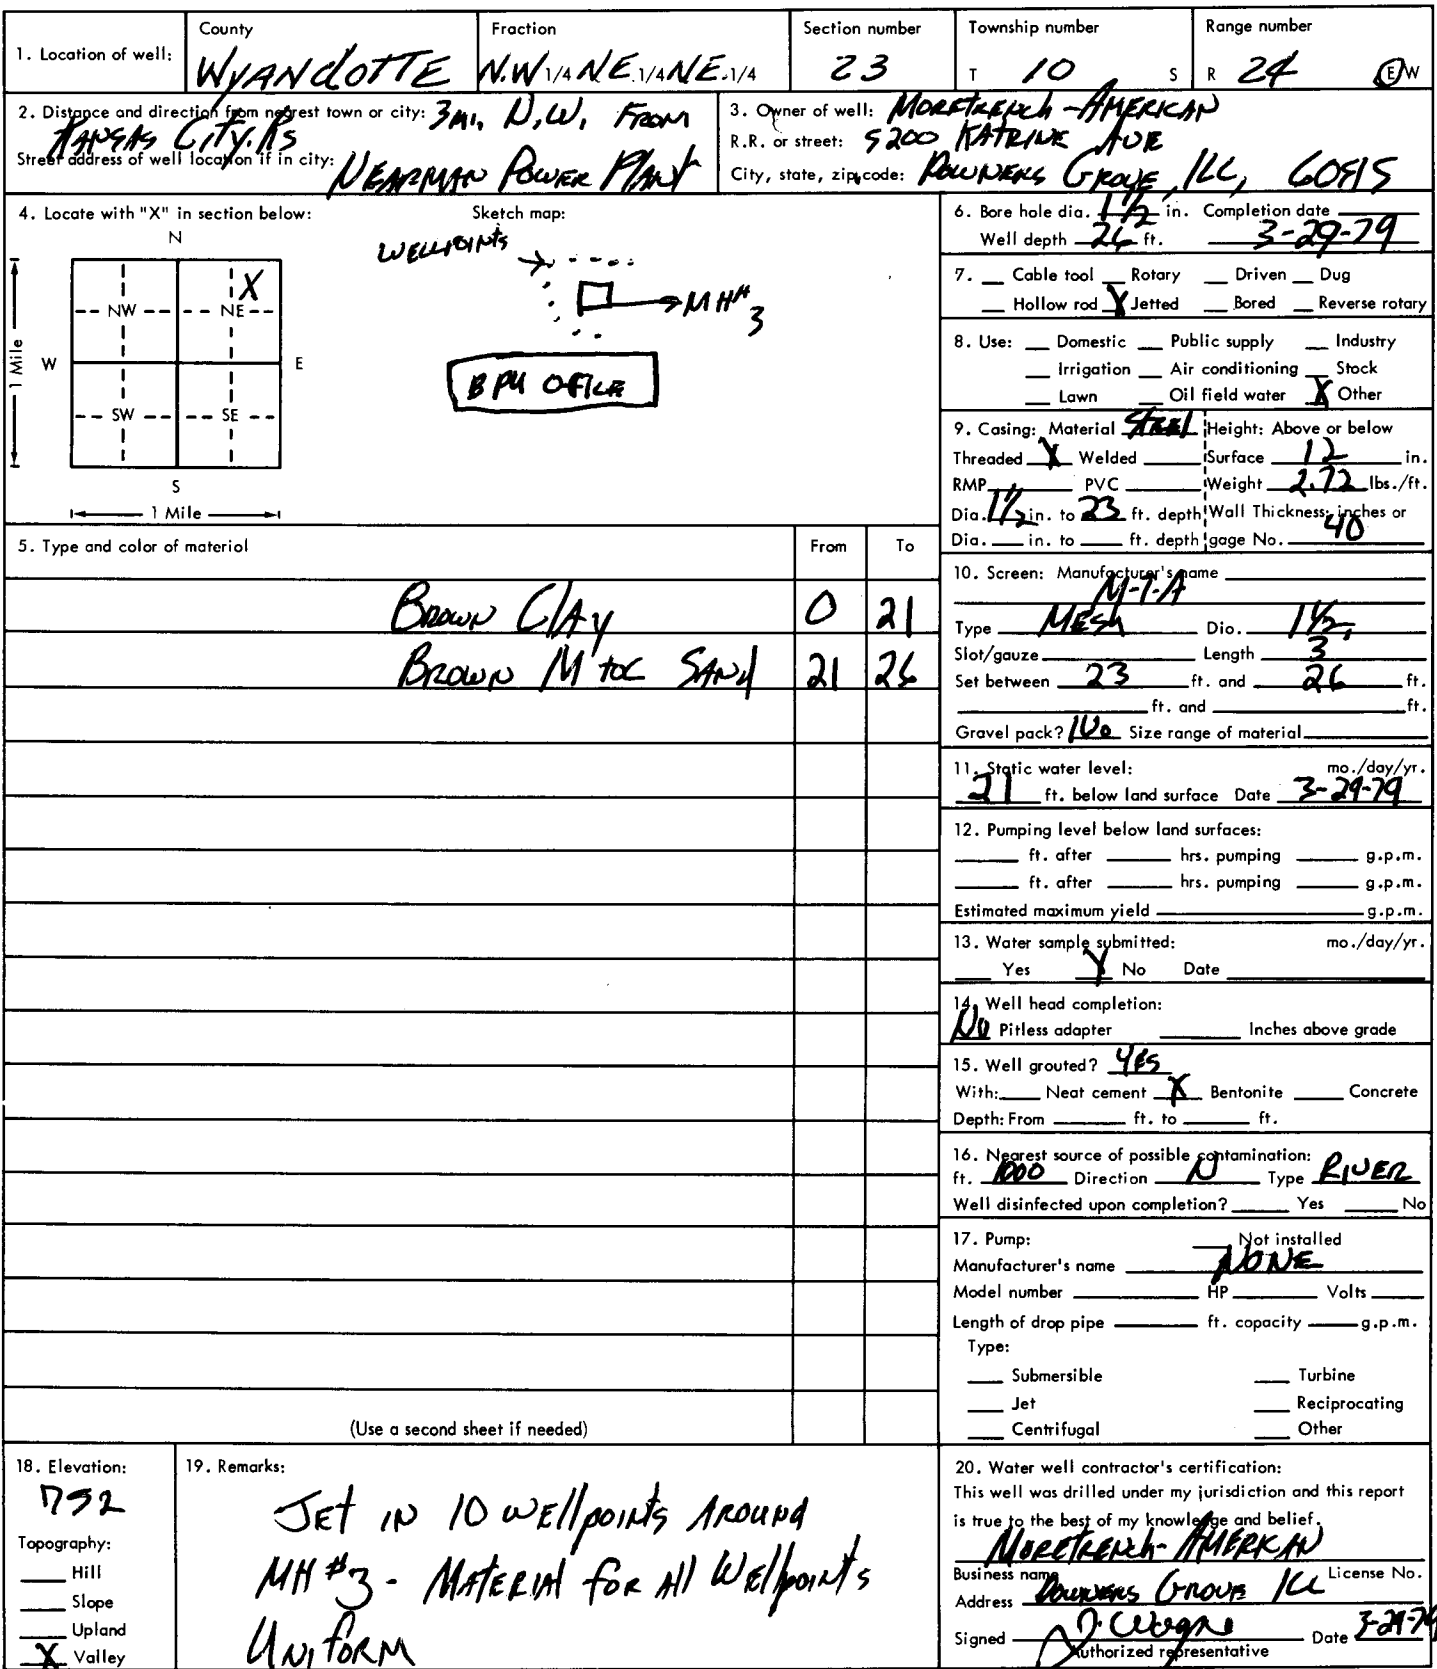 County Fraction Section number Township number Range number
1. Location of well: WYANdOTTE N.W 1/4 NE 1/4 NE 1/4 23 T 10 S R 24 E W
2. Distance and direction from nearest town or city: 3 mi. N.W. From
Kansas City, Ks
Street address of well location if in city: Nearman Power Plant
3. Owner of well: Moretrench-American
R.R. or street: 5200 Katrine Ave
City, state, zip code: Downers Grove, Ill, 60515
4. Locate with "X" in section below: Sketch map:
N
X
NW NE
W E
SW SE
S
1 Mile
1 Mile
Wellpoints
MH# 3
BPU Office
5. Type and color of material From To
Brown Clay 0 21
Brown M to C Sand 21 26
(Use a second sheet if needed)
6. Bore hole dia. 1 1/2 in. Completion date
Well depth 26 ft. 3-29-79
7. Cable tool Rotary Driven Dug
Hollow rod X Jetted Bored Reverse rotary
8. Use: Domestic Public supply Industry
Irrigation Air conditioning Stock
Lawn Oil field water X Other
9. Casing: Material Steel Height: Above or below
Threaded X Welded Surface 12 in.
RMP PVC Weight 2.72 lbs./ft.
Dia. 1 1/2 in. to 23 ft. depth Wall Thickness: inches or
Dia. in. to ft. depth gage No. 40
10. Screen: Manufacturer's name
M-T-A
Type Mesh Dio. 1 1/2
Slot/gauze Length 3
Set between 23 ft. and 26 ft.
ft. and ft.
Gravel pack? No Size range of material
11. Static water level: mo./day/yr.
21 ft. below land surface Date 3-29-79
12. Pumping level below land surfaces:
ft. after hrs. pumping g.p.m.
ft. after hrs. pumping g.p.m.
Estimated maximum yield g.p.m.
13. Water sample submitted: mo./day/yr.
Yes X No Date
14. Well head completion:
No Pitless adapter Inches above grade
15. Well grouted? Yes
With: Neat cement X Bentonite Concrete
Depth: From ft. to ft.
16. Nearest source of possible contamination:
ft. 1000 Direction N Type River
Well disinfected upon completion? Yes No
17. Pump: Not installed
Manufacturer's name NONE
Model number HP Volts
Length of drop pipe ft. capacity g.p.m.
Type:
Submersible Turbine
Jet Reciprocating
Centrifugal Other
18. Elevation:
752
Topography:
Hill
Slope
Upland
X Valley
19. Remarks:
Jet in 10 wellpoints Around
MH #3 - Material for all Wellpoints
Uniform
20. Water well contractor's certification:
This well was drilled under my jurisdiction and this report
is true to the best of my knowledge and belief.
Moretrench-American
Business name License No.
Address Downers Grove Ill
Signed Date 3-29-79
Authorized representative